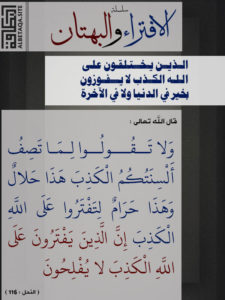 سلسلة
الافتراء والبهتان
ALBETAQA-SITE
الذين يختلقون على
الله الكذب لا يفوزون
بخير في الدنيا ولا في الآخرة
قال الله تعالى :
وَلَا تَقُولُوا لِمَا تَصِفُ
أَلْسِنَتُكُمُ الْكَذِبَ هَذَا حَلَالٌ
وَهَذَا حَرَامٌ لِتَفْتَرُوا عَلَى اللَّهِ
الْكَذِبَ إِنَّ الَّذِينَ يَفْتَرُونَ عَلَى
اللَّهِ الْكَذِبَ لَا يُفْلِحُونَ
( النحل : 116 )